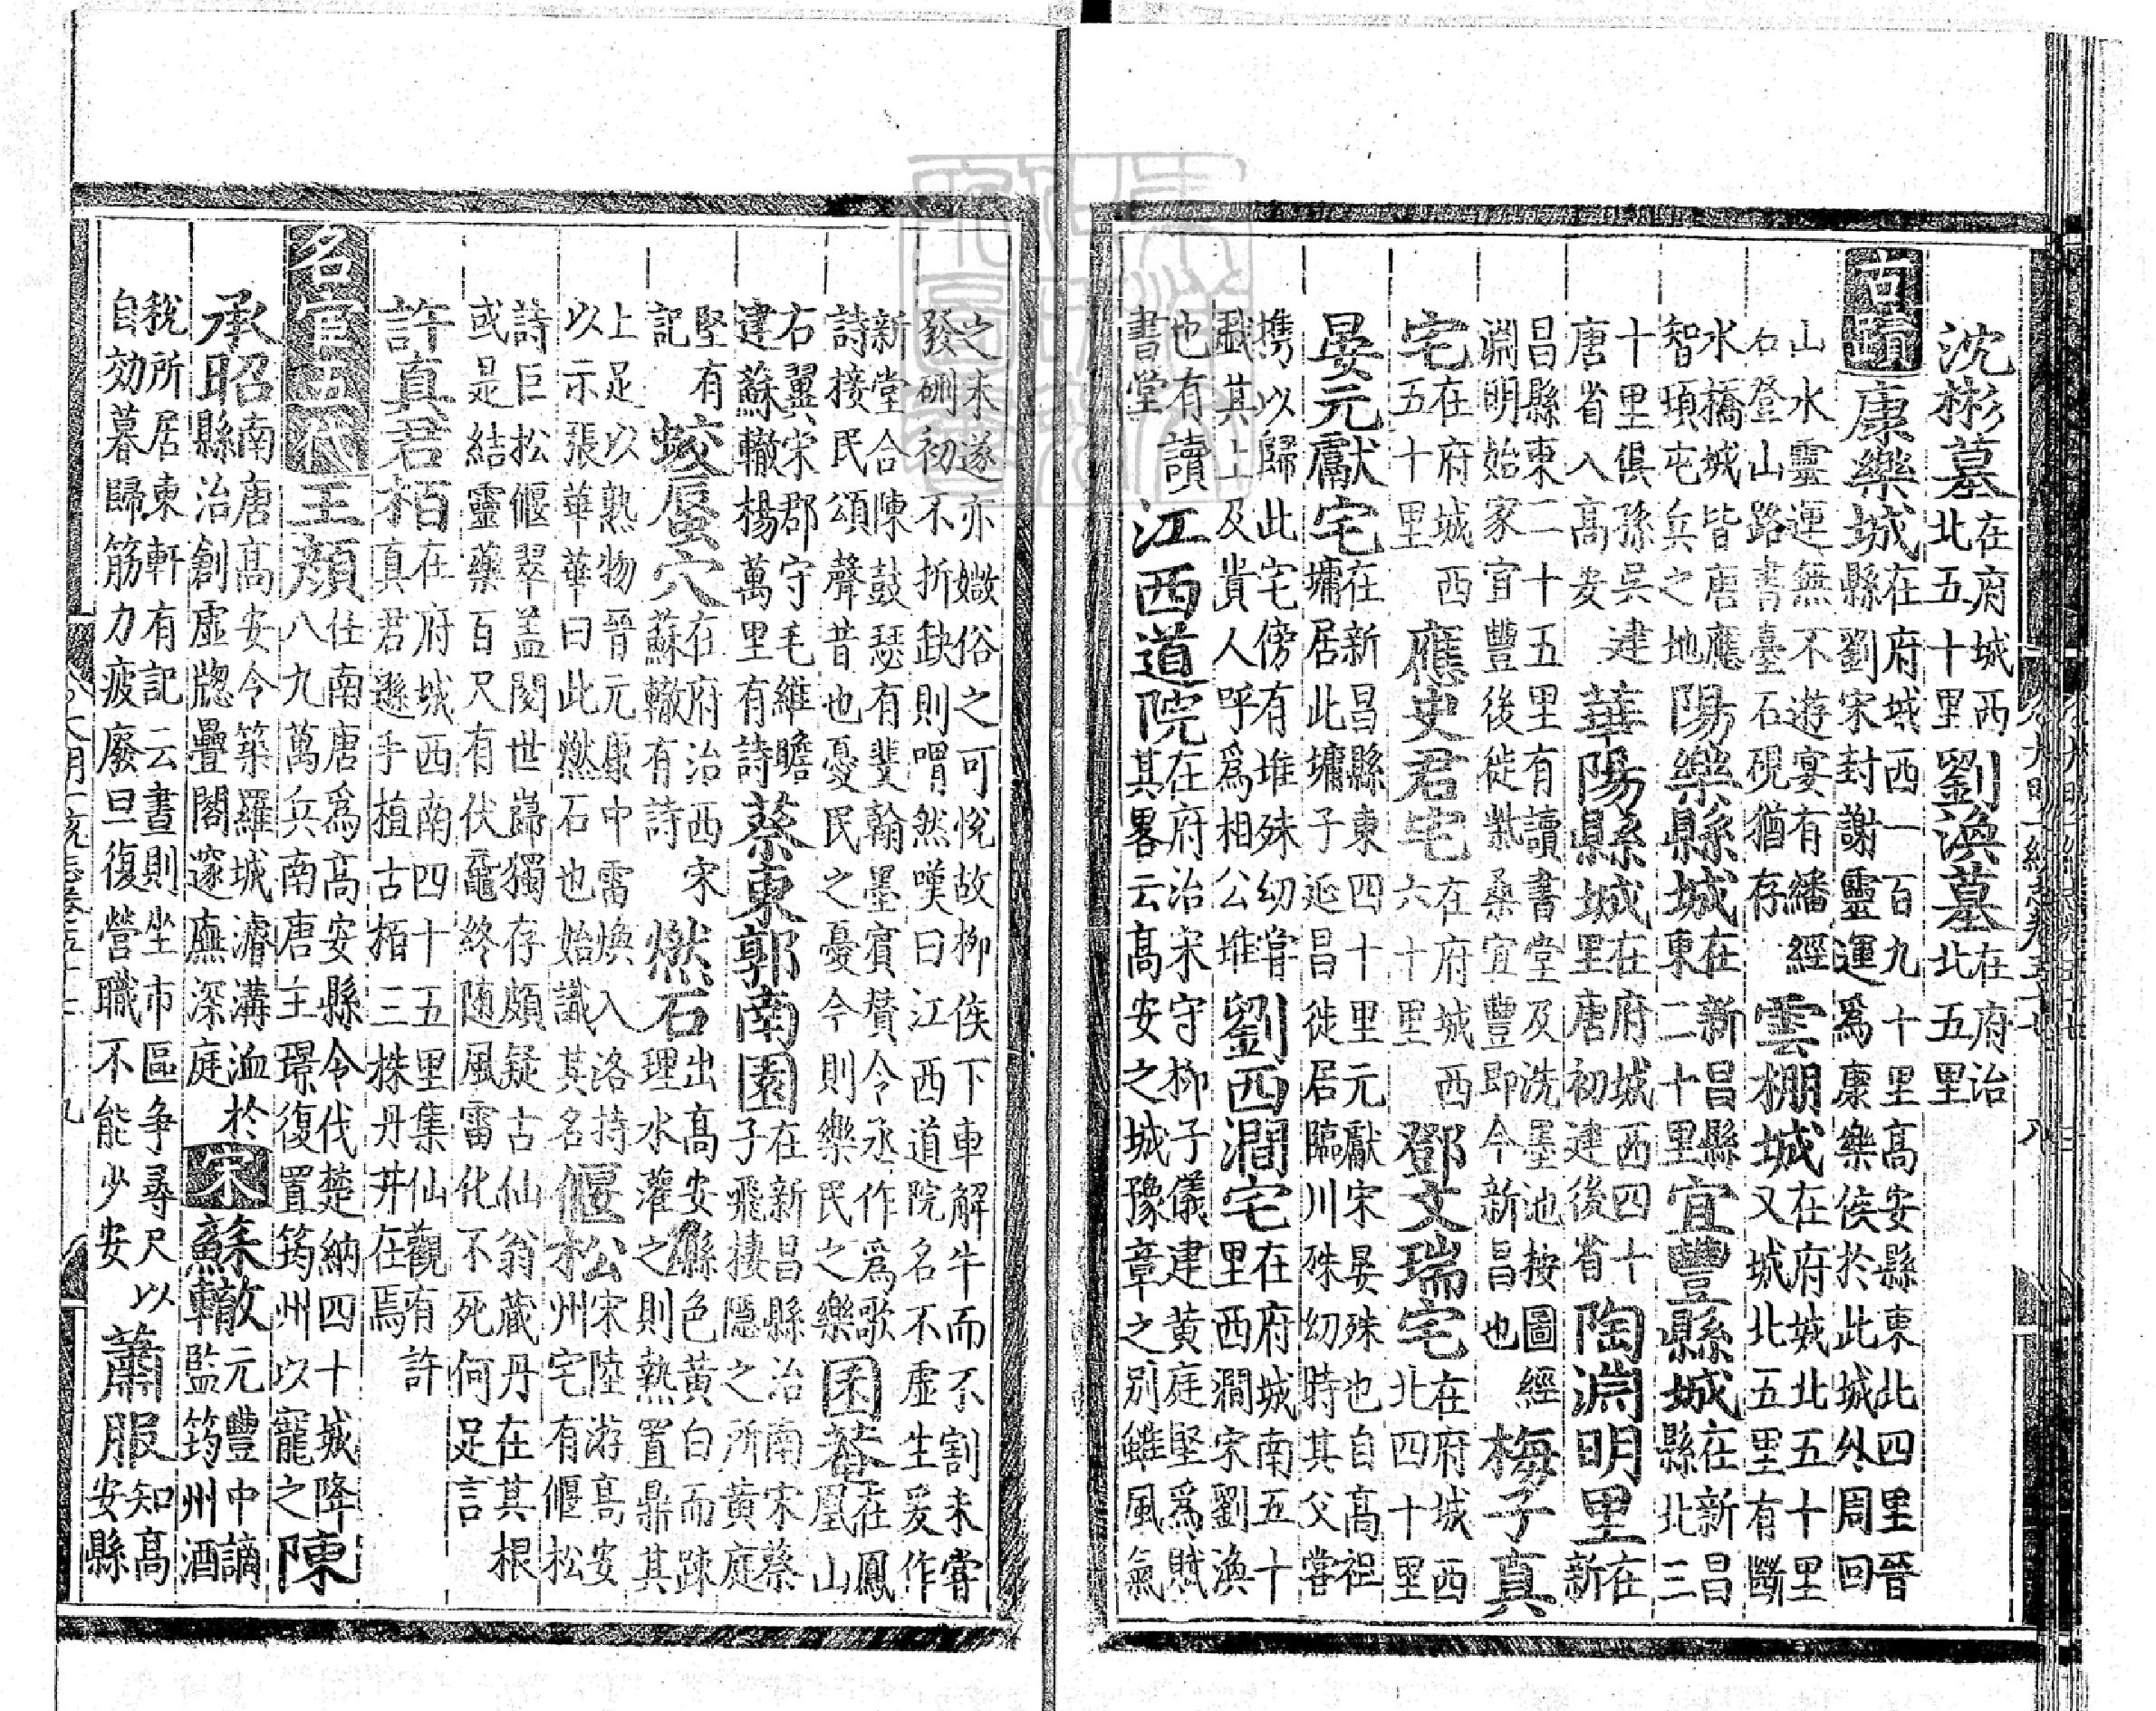 沈彬墓在府城西北五十里劉渙墓在府治北五里
古蹟康樂城在府城西一百九十里高安縣東北四里晉縣劉宋封謝靈運爲康樂侯於此城外周回
山水靈運無不遊宴有繙經石登山路書臺石硯猶存雲棚城在府城北五十里又城北五里有斷
水橋城皆唐應智頊屯兵之地陽樂縣城在新昌縣東二十里宜豐縣城在新昌縣北三
十里俱孫吳建華陽縣城在府城西四十里唐初建後省陶淵明里在新
唐省入高安
昌縣東二十五里有讀書堂及洗墨池按圖經淵明始家宜豐後徙柴桑宜豐即今新昌也梅子真
宅在府城西五十里應史君宅在府城西六十里鄧文瑞宅在府城西北四十里
晏元獻宅在新昌縣東四十里元獻宋晏殊也自高祖墉居此墉子延昌徙居臨川殊幼時其父嘗
携以歸此宅傍有堆殊幼嘗戲其上及貴人呼爲相公堆劉西澗宅在府城南五十里西澗宋劉渙
也有讀書堂江西道院在府治宋守柳子儀建黃庭堅爲賦其畧云高安之城豫章之別雖風氣
之未遂亦媺俗之可悅故柳侯下車解牛而不割未嘗發硎初不折缺則喟然嘆曰江西道院名不虛生爰作
新堂合陳鼓瑟有斐翰墨賓賛令丞作爲歌詩接民頌聲昔也憂民之憂今則樂民之樂圉菴在鳳凰山
右翼宋郡守毛維瞻建蘇轍楊萬里有詩蔡東郭南園在新昌縣治南宋蔡子飛棲隱之所黃庭
堅有記蛟蜃穴在府治西宋蘇轍有詩燃石出高安縣色黃白而疎理水灌之則熱置鼎其
上足以熟物晉元康中雷煥入洛持以示張華華曰此燃石也始識其名偃松宋陸游高安州宅有偃松
詩巨松偃翠蓋閱世巋獨存頗疑古仙翁藏丹在其根或是結靈藥百尺有伏黿終随風雷化不死何足言
許真君栢在府城西南四十五里集仙觀有許真君遜手植古栢三株丹井在焉
名宦五代王顔仕南唐爲高安縣令伐楚納四十城降八九萬兵南唐主璟復置筠州以寵之陳
承昭南唐高安令築羅城濬溝洫於縣治創虛牕疊閣邃廡深庭宋蘇轍元豐中謫監筠州酒
稅所居東軒有記云晝則坐市區爭尋尺以自効暮歸筋力疲廢旦復營職不能少安蕭服知高安縣
大明一統志卷五十七 八
大明一統志卷五十七 九